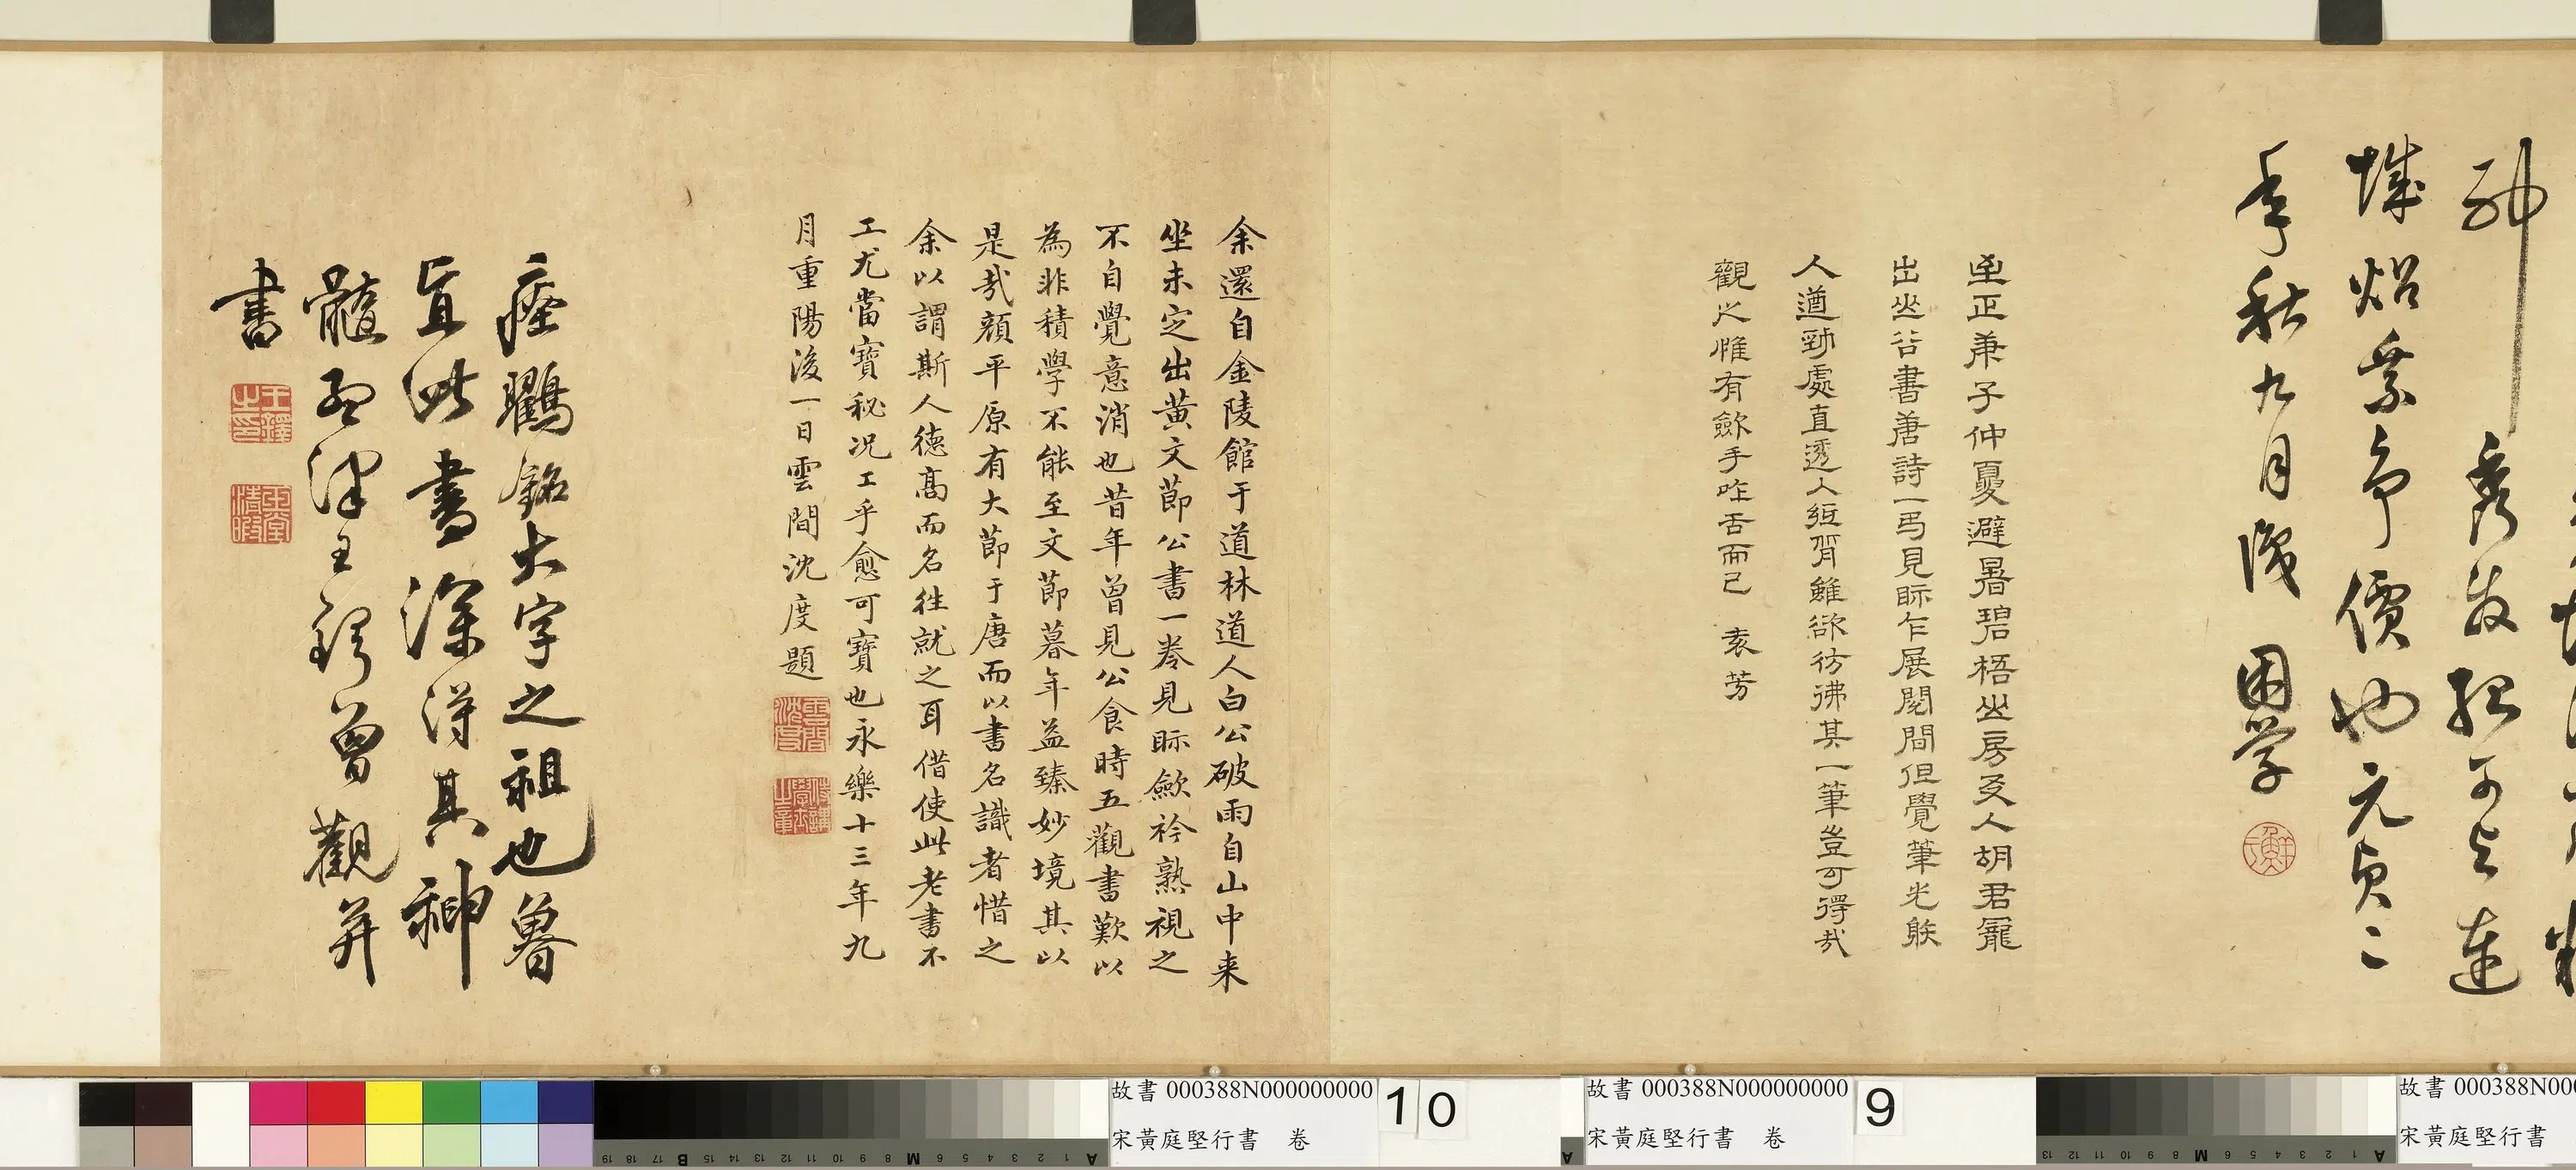 神
秀發狂可與連
城炤乘爭價也元貞二
年秋九月識 困學
至正庚子仲夏避暑碧梧山房友人胡君寵
出山谷書唐詩一弓見眎乍展閱間但覺筆光射
人遒勁處直透人紙背雖欲彷彿其一筆豈可得哉
觀之惟有歛手咋舌而已 袁芳
余還自金陵館于道林道人白公破雨自山中来
坐未定出黄文節公書一卷見眎歛衿熟視之
不自覺意消也昔年曾見公食時五觀書歎以
為非積學不能至文節暮年益臻妙境其以
是哉顔平原有大節于唐而以書名識者惜之
余以謂斯人德髙而名往就之耳借使此老書不
工尤當寶秘况工乎愈可寶也永樂十三年九
月重陽後一日雲間沈度題
瘞鸖銘大字之祖也魯
直此書深得其神
髓孟津王鐸曾觀并
書
王鐸之印
故書 000388N000000000
宋黃庭堅行書 卷
10
故書 000388N000000000
宋黃庭堅行書 卷
9
故書 000388N00
宋黃庭堅行書